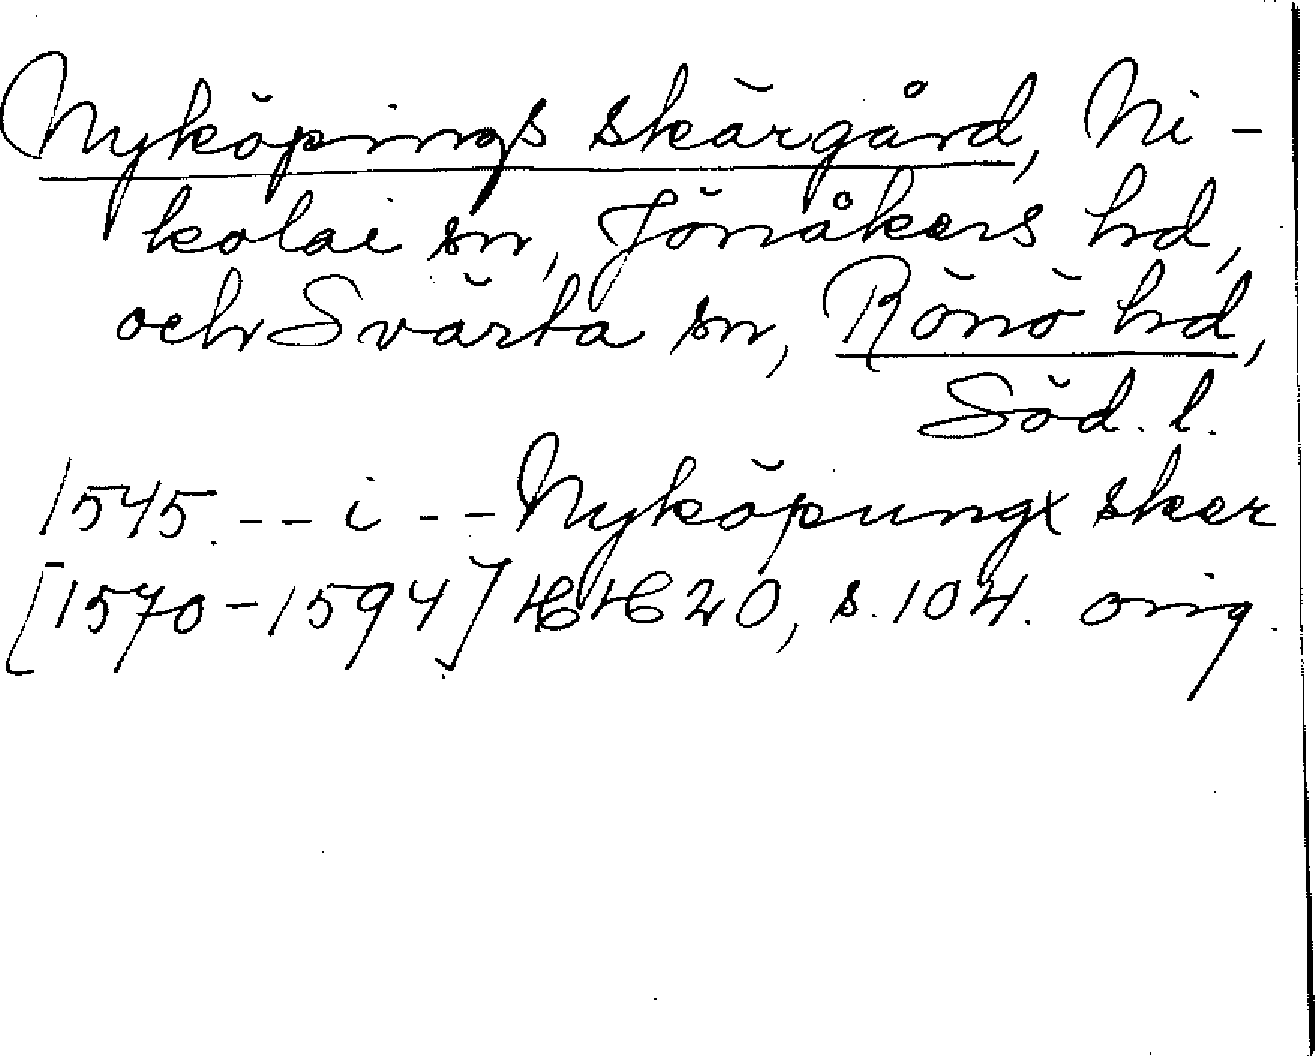 Nyköpings skärgård, Ni-
kolai sn, Jönåkers hd,
och Svärta sn, Rönö hd,
Söd. l.
1545. -- i -- Nyköpungx sker
[1570-1594] HH 20, s. 104. orig.